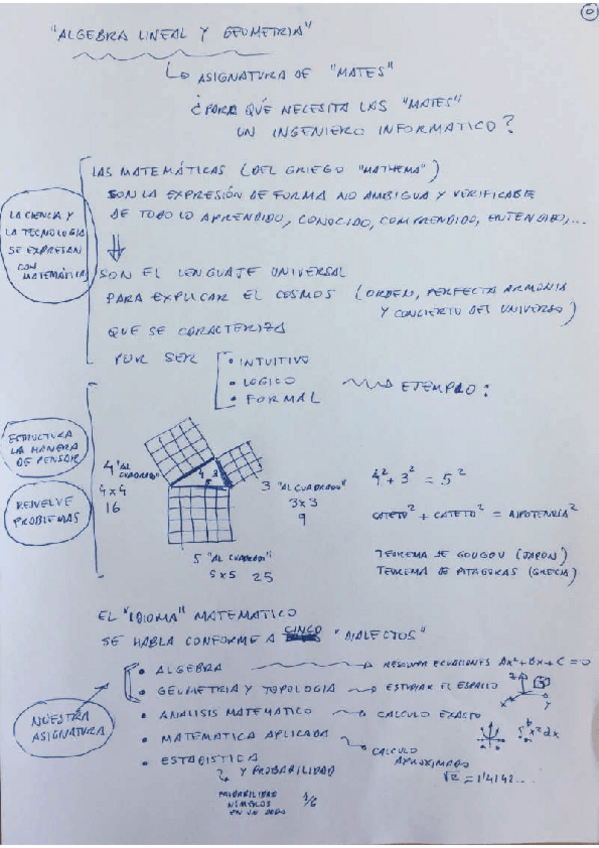 0
"ALGEBRA LINEAL Y GEOMETRIA"
LA ASIGNATURA DE "MATES"
¿PARA QUÉ NECESITA LAS "MATES"
UN INGENIERO INFORMATICO?
LAS MATEMÁTICAS (DEL GRIEGO "MATHEMA")
SON LA EXPRESIÓN DE FORMA NO AMBIGUA Y VERIFICABLE
DE TODO LO APRENDIDO, CONOCIDO, COMPRENDIDO, ENTENDIDO,...
LA CIENCIA Y
LA TECNOLOGIA
SE EXPRESAN
CON
MATEMÁTICAS
SON EL LENGUAJE UNIVERSAL
PARA EXPLICAR EL COSMOS (ORDEN, PERFECTA ARMONIA
Y CONCIERTO DEL UNIVERSO)
QUE SE CARACTERIZA
POR SER
• INTUITIVO
• LOGICO
• FORMAL
EJEMPLO:
ESTRUCTURA
LA MANERA
DE PENSAR
RESUELVE
PROBLEMAS
4 "AL
CUADRADO"
4x4
16
4 3
5
3 "AL CUADRADO"
3x3
9
5 "AL CUADRADO"
5x5 25
4² + 3² = 5²
CATETO² + CATETO² = HIPOTENUSA²
TEOREMA DE GOUGOU (JAPON)
TEOREMA DE PITAGORAS (GRECIA)
EL "IDIOMA" MATEMATICO
SE HABLA CONFORME A CINCO "DIALECTOS"
• ALGEBRA RESOLVER ECUACIONES Ax²+Bx+C=0
• GEOMETRIA Y TOPOLOGIA ESTUDIAR EL ESPACIO
• ANALISIS MATEMATICO CALCULO EXACTO
• MATEMATICA APLICADA CALCULO
APROXIMADO
√2 = 1'4142...
• ESTADISTICA
Y PROBABILIDAD
NUESTRA
ASIGNATURA
PROBABILIDAD
NÚMEROS
EN UN DADO
1/6